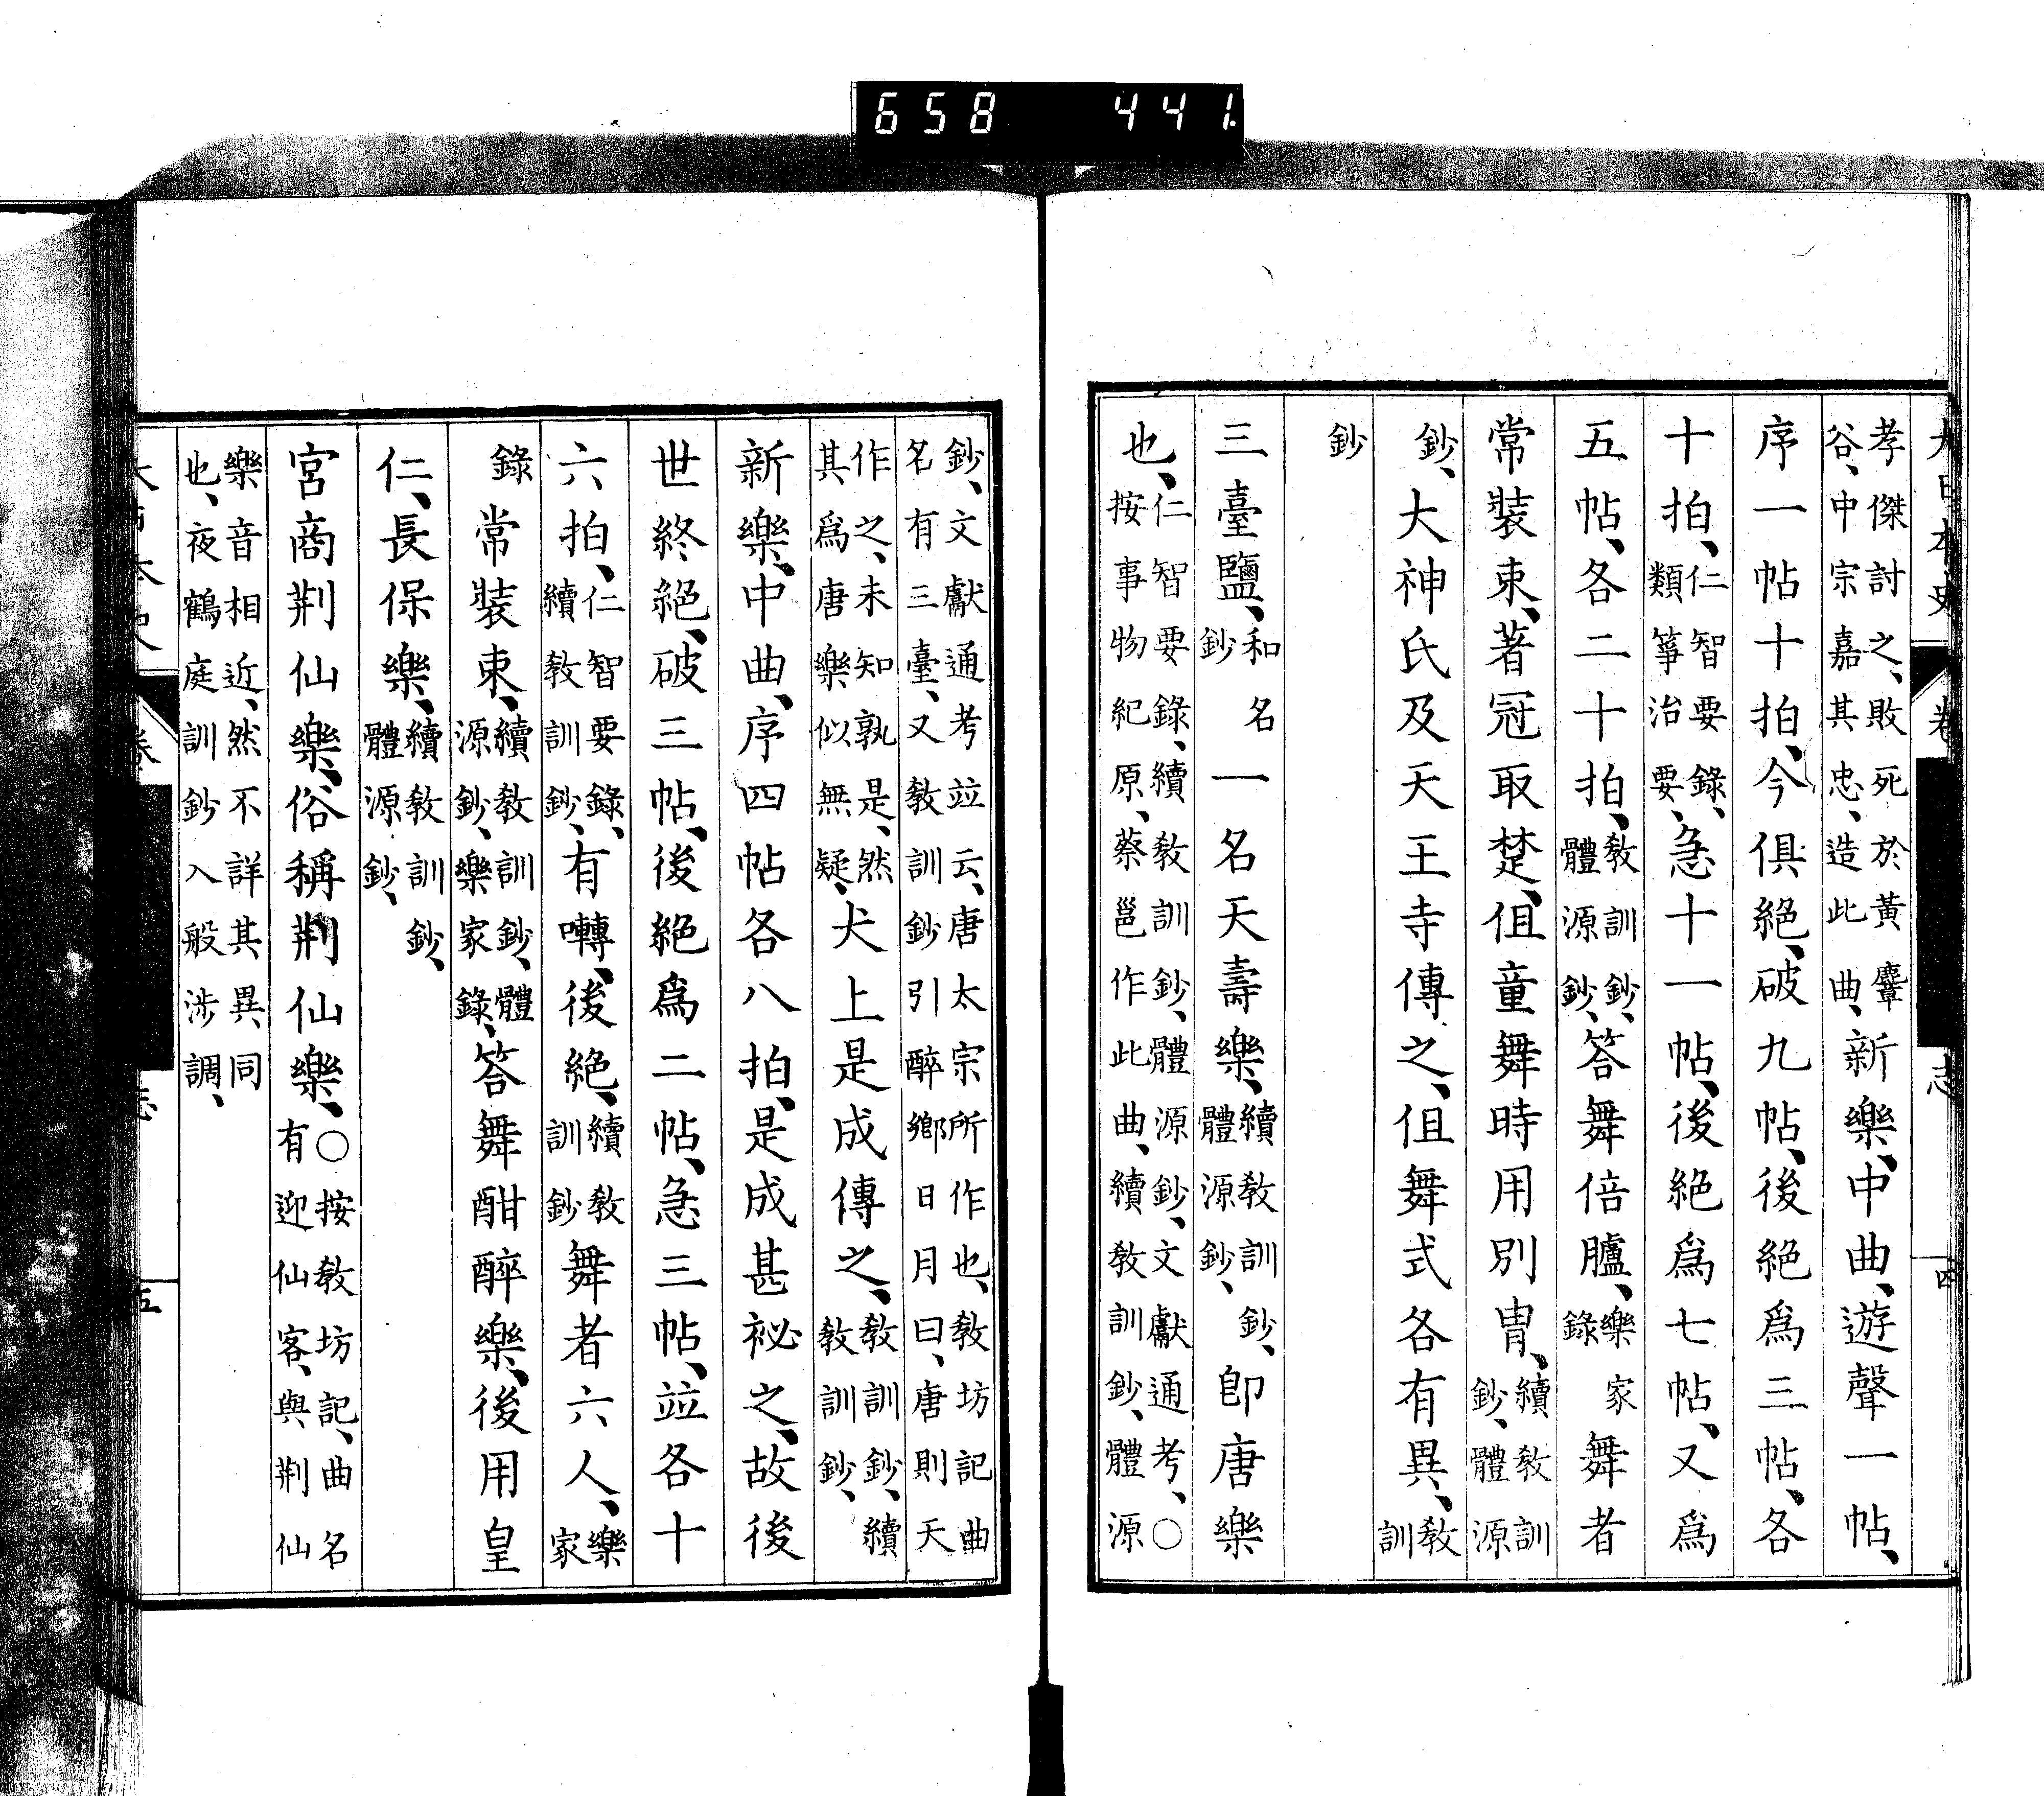 大日本史 卷 志 四
孝傑討之、敗死於黃麞谷、中宗嘉其忠、造此曲、新樂、中曲、遊聲一帖、
序一帖十拍、今俱絕、破九帖、後絕爲三帖、各
十拍、仁智要錄、類箏治要、急十一帖、後絕爲七帖、又爲
五帖、各二十拍、教訓鈔、體源鈔、答舞倍臚、樂家錄舞者
常裝束、著冠取楚、但童舞時用別冑、續教訓鈔、體源
鈔、大神氏及天王寺傳之、但舞式各有異、教訓
鈔
三臺鹽、和名鈔一名天壽樂、續教訓鈔、體源鈔、卽唐樂
也、仁智要錄、續教訓鈔、體源鈔、文獻通考、○按事物紀原、蔡邕作此曲、續教訓鈔、體源
鈔、文獻通考竝云、唐太宗所作也、教坊記曲名有三臺、又教訓鈔引醉鄉日月曰、唐則天
作之、未知孰是、然其爲唐樂似無疑、犬上是成傳之、教訓鈔、續教訓鈔、
新樂、中曲、序四帖各八拍、是成甚祕之、故後
世終絕、破三帖、後絕爲二帖、急三帖、竝各十
六拍、仁智要錄、續教訓鈔、有囀、後絕、續教訓鈔舞者六人、樂家
錄常裝束、續教訓鈔、體源鈔、樂家錄、答舞酣醉樂、後用皇
仁、長保樂、續教訓鈔、體源鈔、
宮商荆仙樂、俗稱荆仙樂、○按教坊記、曲名有迎仙客、與荆仙
樂音相近、然不詳其異同也、夜鶴庭訓鈔入般涉調、
大日本史 卷 志 五